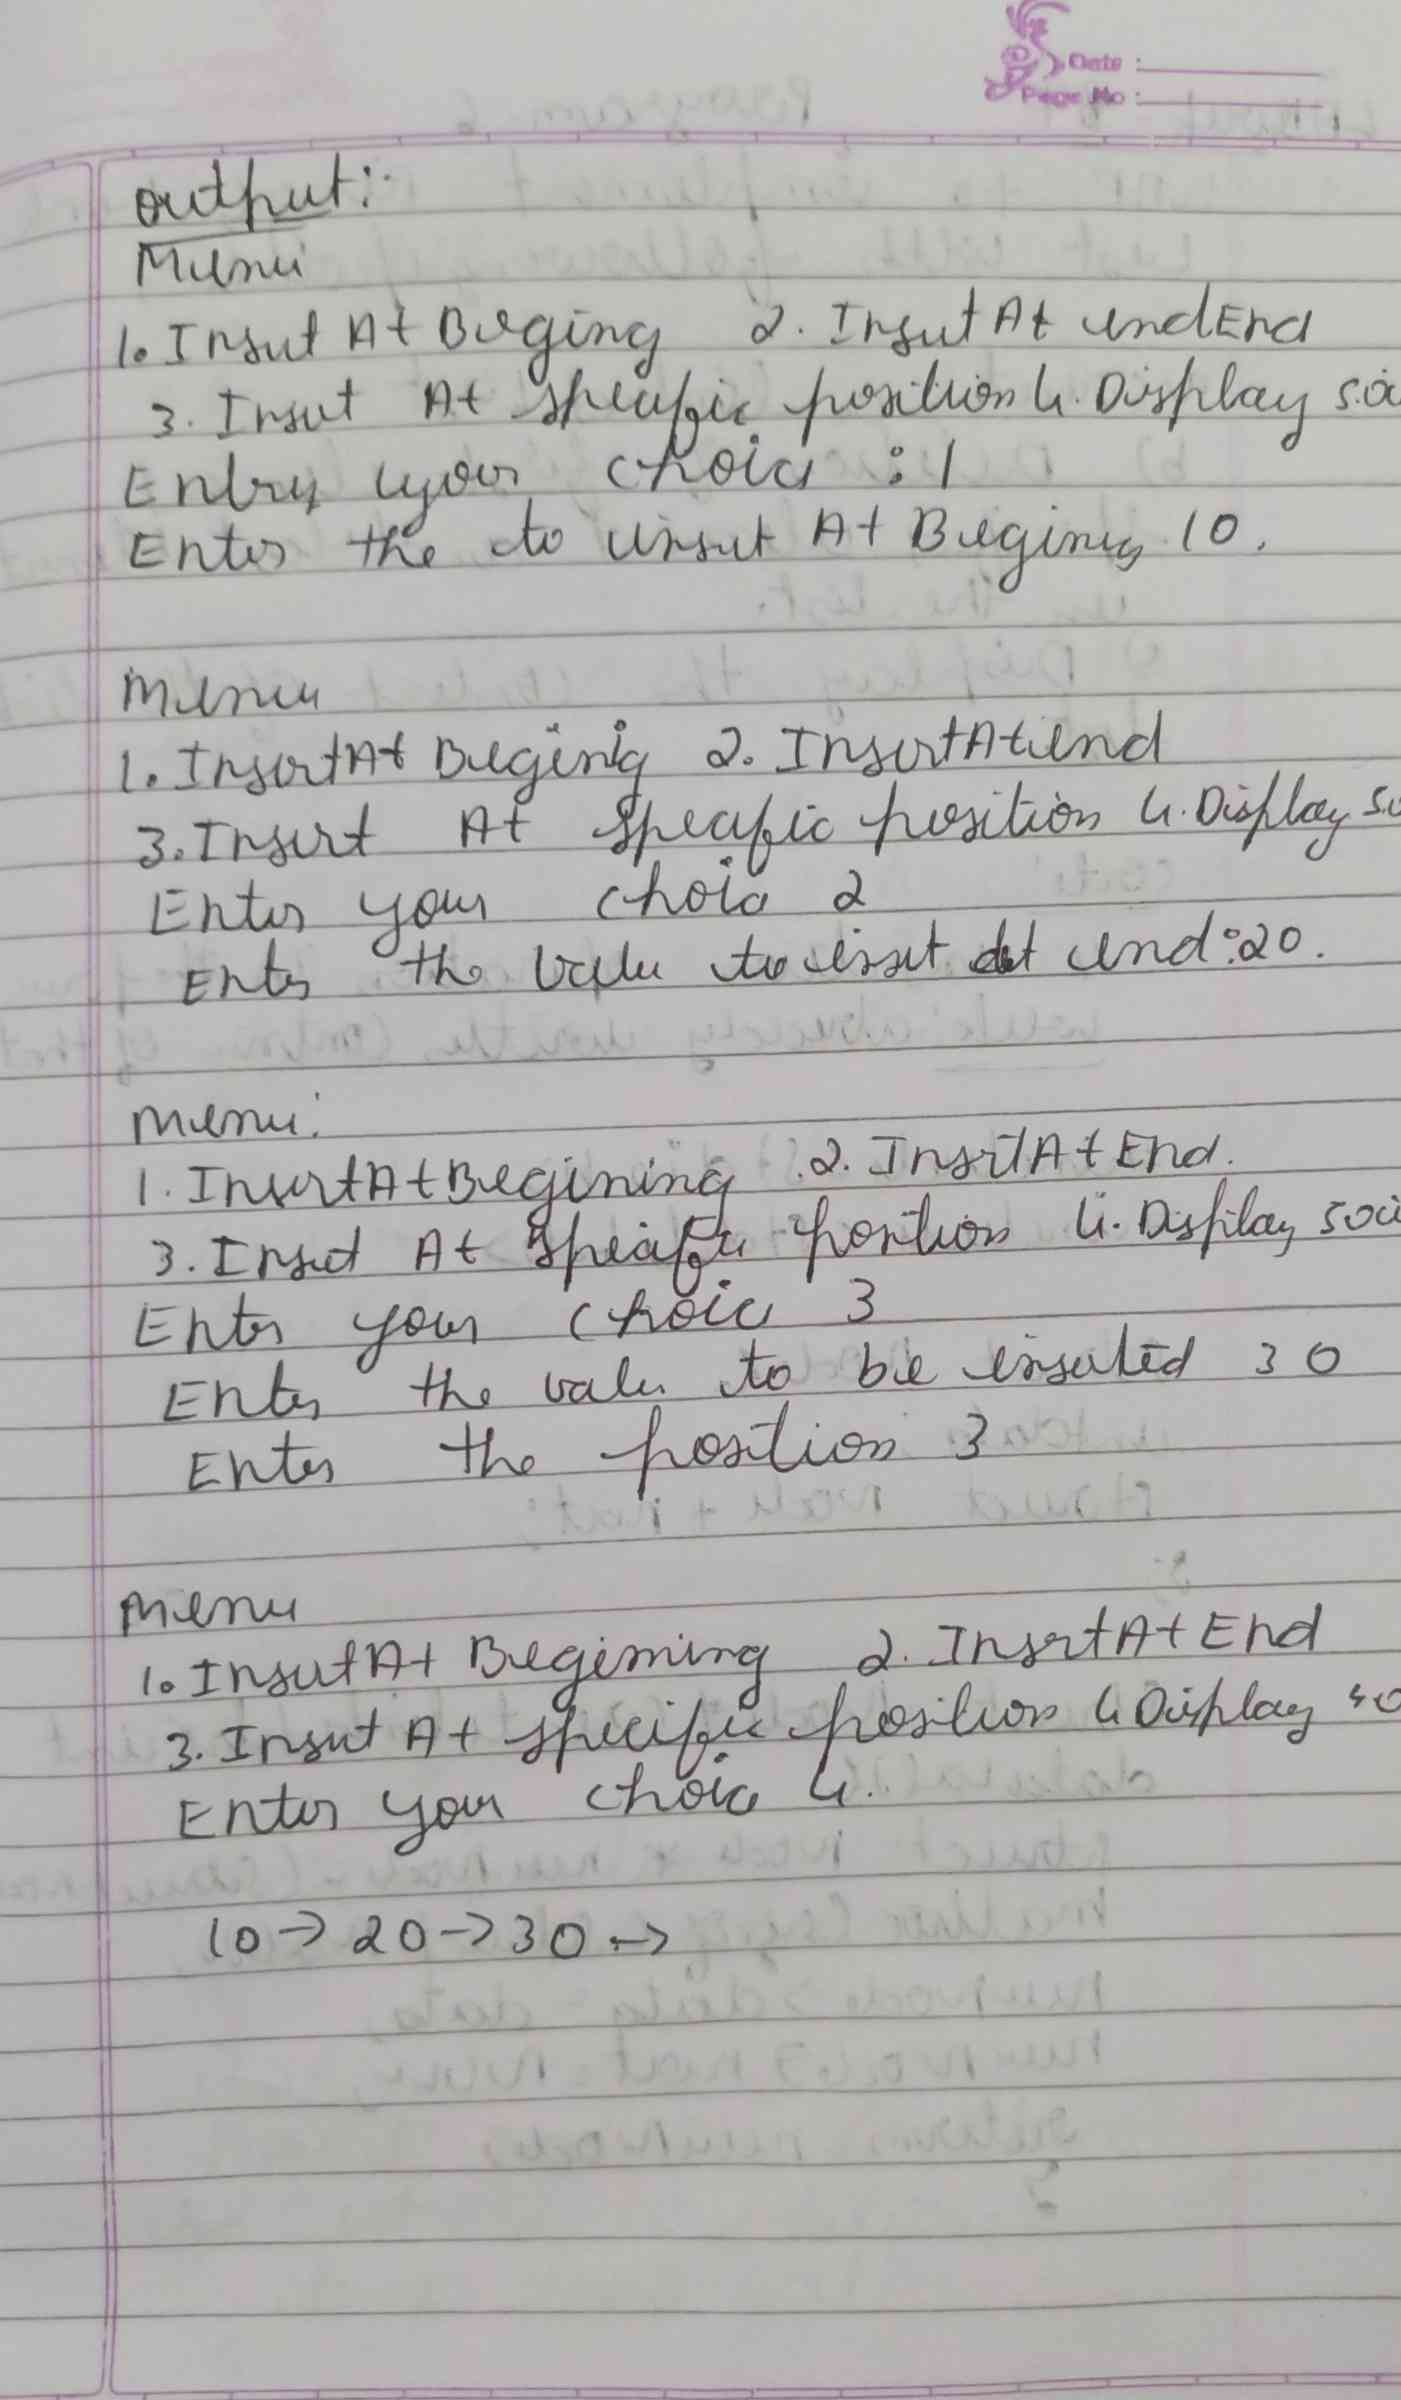 Date :
Page No :
output:-
Menu
1. Insert At Beging 2. Insert At endEnd
3. Insert At specific position 4. Display 5.
Entry your choice : 1
Enter the to insert At Begining 10.
Menu
1. InsertAt Beginig 2. InsertAt end
3. Insert At specific position 4. Display 5.
Enter your choice 2
Enter the value to insert at end:20.
Menu:
1. InsertAtBegining 2. InsertAtEnd.
3. Insert At specific position 4. Display 5
Enter your choice 3
Enter the value to be inserted 30
Enter the position 3
Menu
1. InsertAt Begining 2. InsertAt End
3. Insert At specific position 4 Display
Enter your choice 4.
10→ 20→30→